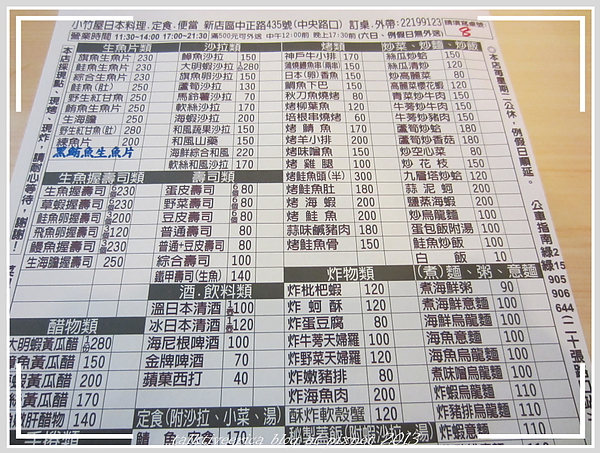 小竹屋日本料理.定食.便當 新店區中正路435號(中央路口) 訂桌.外帶:22199123 請填寫桌號
營業時間 11:30~14:00 17:00~21:30 滿500元可外送 中午12:00前 晚上17:30前(六日、例假日無外送) 8
本店採現點、現烤、現炸,請耐心等待,謝謝!
生魚片類
旗魚生魚片 250
鮭魚生魚片 230
綜合生魚片 250
鮭魚(肚) 250
野生紅甘魚 250
鮪魚生魚片 250
生海膽 250
野生紅甘魚(肚) 280
綠魚片 200
黑鮪魚生魚片
生魚握壽司類
生魚握壽司 230
草蝦握壽司 230
鮭魚卵握壽司 230
飛魚卵握壽司 120
鰻魚握壽司 230
生海膽握壽司 250
醋物類
大明蝦黃瓜醋 280
黃瓜醋 150
蝦黃瓜醋 200
黃瓜醋 170
肝醋物 140
沙拉類
鱆魚沙拉 150
大明蝦沙拉 280
旗魚卵沙拉 150
蘆筍沙拉 130
馬鈴薯沙拉 170
軟絲沙拉 170
海蝦沙拉 200
和風蔬果沙拉 150
和風山藥 150
海鮮綜合沙拉 220
軟絲和風沙拉 170
壽司類
蛋皮壽司 90
野菜壽司 80
豆皮壽司 80
普通壽司 80
普通+豆皮壽司 80
綜合壽司 100
鐵甲壽司(生魚) 140
酒.飲料類
溫日本清酒 100
冰日本清酒 120
海尼根啤酒 100
金牌啤酒 70
蘋果西打 40
定食(附沙拉、小菜、湯)
鯖魚定食 170
烤類
神戶牛小排 170
蒲燒鰻魚串(兩串) 150
日本(卵)香魚 150
鯛魚下巴 150
秋刀魚燒烤 80
烤柳葉魚 120
培根串燒烤 60
烤鯖魚 170
烤羊小排 200
烤味噌魚 150
烤雞腿 100
烤鮭魚頭(半) 300
烤鮭魚肚 180
烤海蝦 200
烤鮭魚 200
蒜味鹹豬肉 180
烤鮭魚骨 150
炸物類
炸枇杷蝦 120
炸蚵酥 120
炸蛋豆腐 80
炸牛蒡天婦羅 100
炸野菜天婦羅 120
炸嫩豬排 80
炸海魚肉 200
酥炸軟殼蟹 120
秘製蓋飯(附蝦沙拉、湯)
炒菜、炒麵、炒飯
絲瓜炒蛤 150
絲瓜清炒 120
炒高麗菜 80
高麗菜櫻花蝦 120
青菜炒牛肉 150
牛蒡炒牛肉 150
牛蒡炒豬肉 150
蘆筍炒蛤 180
蘆筍炒香菇 180
炒空心菜 80
炒花枝 150
九層塔炒蛤 120
蒜泥蚵 200
鹽蒸海蝦 200
炒烏龍麵 100
蛋包飯附湯 100
鮭魚炒飯 100
白飯 10
(煮)麵、粥、意麵
煮海鮮粥 90
煮海鮮意麵 100
海鮮烏龍麵 100
海魚意麵 100
海魚烏龍麵 100
煮味噌烏龍麵 100
炸蝦烏龍麵 110
炸豬排烏龍麵 110
炸蝦意麵 110
◎本店每星期二公休,例假日順延。
公車指南綠
綠2 15
905
906
644(二十張路